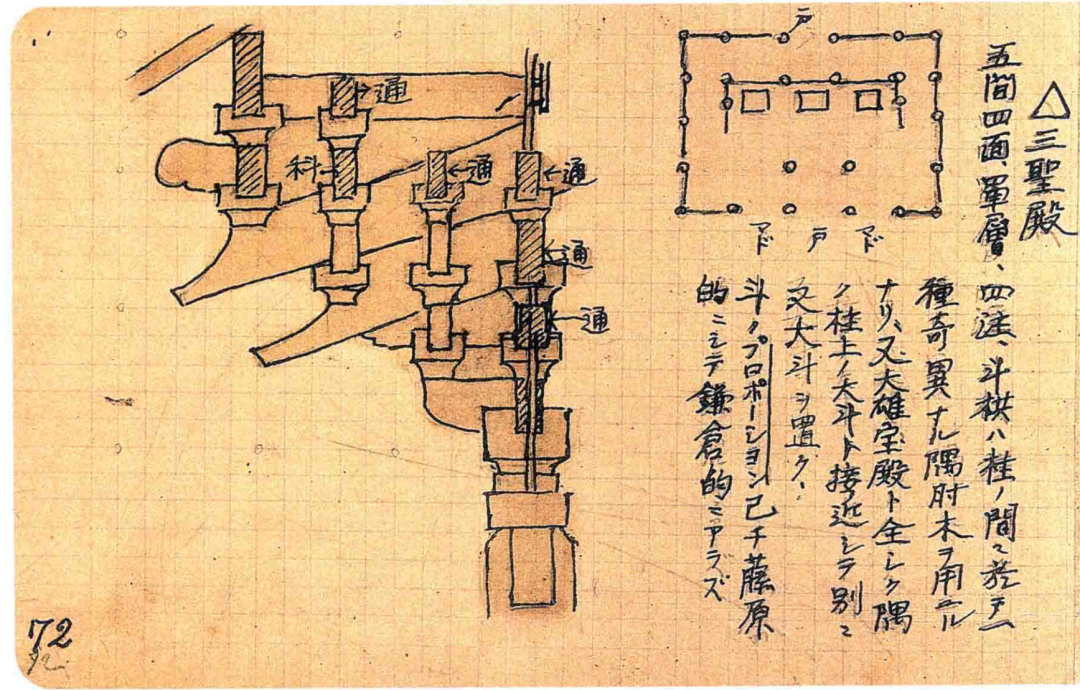 △三聖殿
五間四面、単層、四注、斗栱ハ柱ノ間ニ於テ一
種奇異ナル隅肘木ヲ用ユル
ナリ、又大雄宝殿ト仝シク隅
ノ柱上ノ大斗ト接近シテ別ニ
又大斗ヲ置ク、
斗ノプロポーション己チ藤原
的ニシテ鎌倉的ニアラズ
戸
マド
戸
マド
通
科
通
通
通
通
72
72